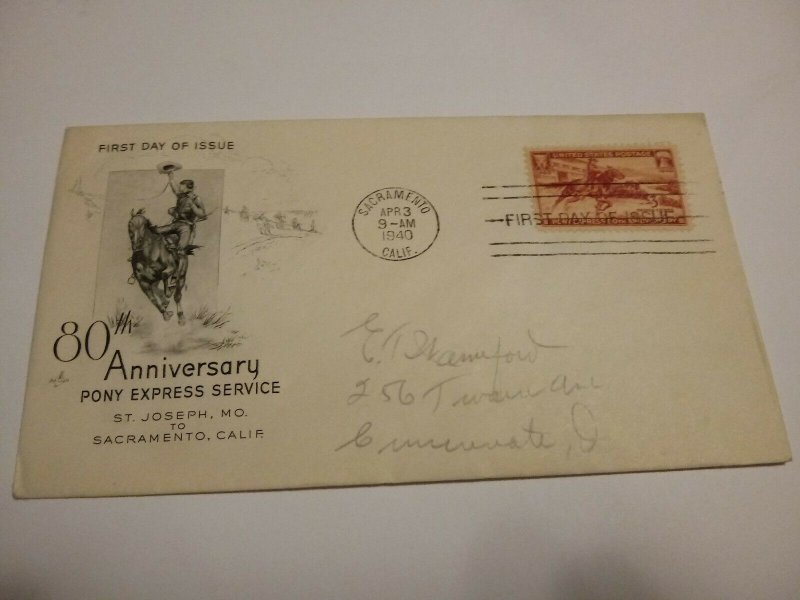 FIRST DAY OF ISSUE
80th
Anniversary
PONY EXPRESS SERVICE
ST. JOSEPH, MO.
TO
SACRAMENTO, CALIF.
SACRAMENTO
APR 3
9-AM
1940
CALIF.
UNITED STATES POSTAGE
FIRST DAY OF ISSUE
PONY EXPRESS 80th ANNIVERSARY
3
256
Cincinnati, O